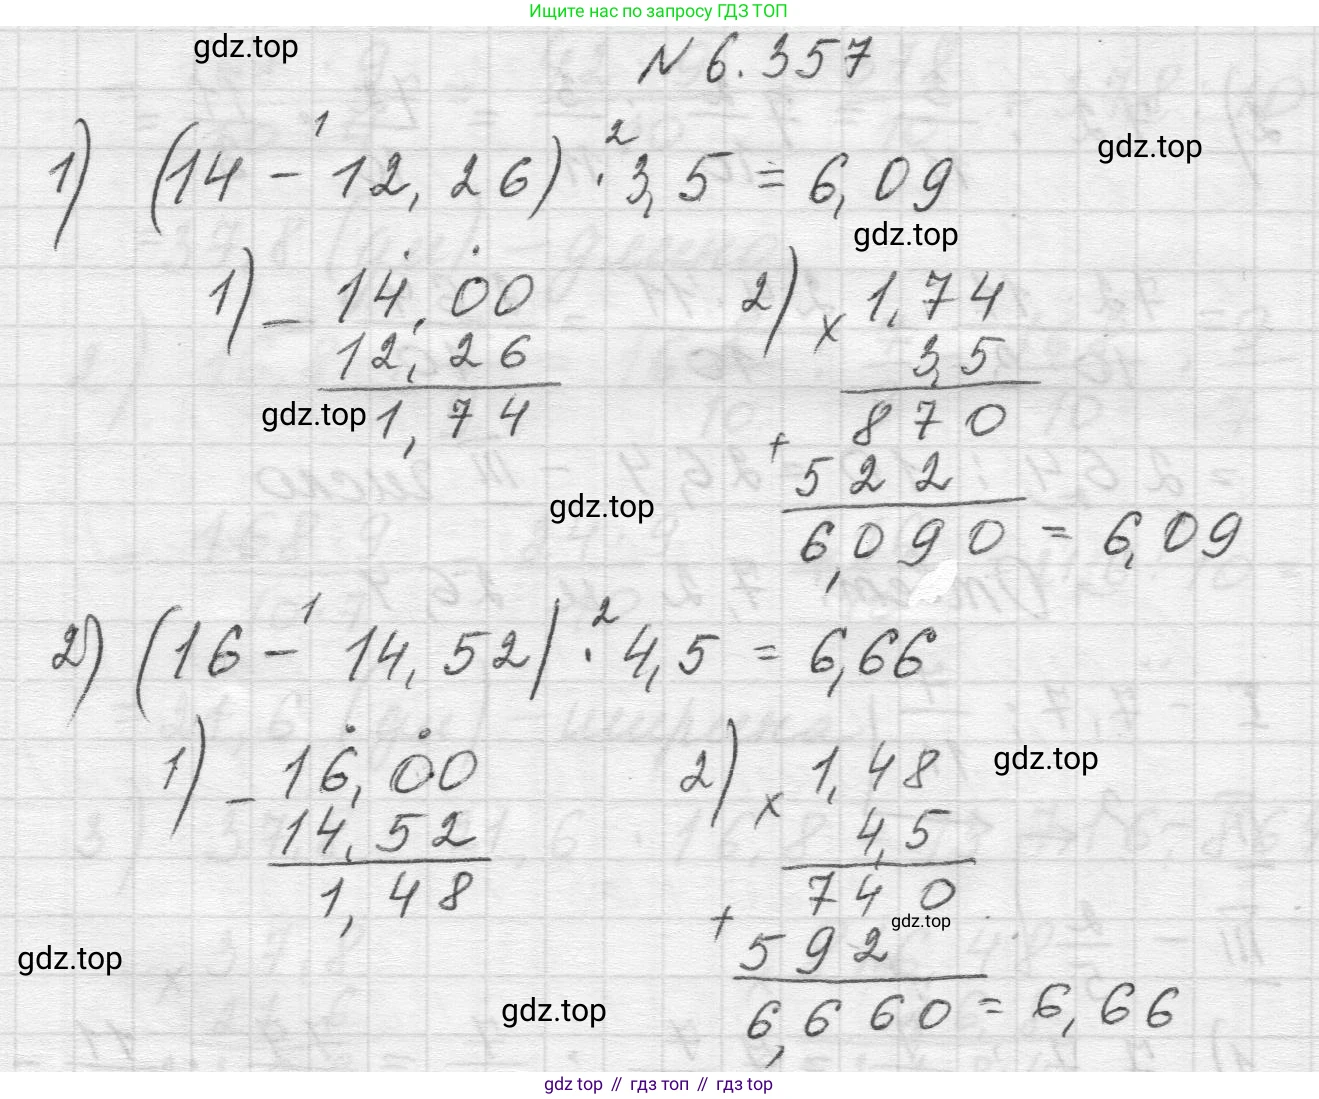 Ищите нас по запросу ГДЗ ТОП
gdz.top
N 6.357
1) (14 - 12,26) · 3,5 = 6,09
1 2
gdz.top
gdz.top
1) _ 14,00
12,26
1,74
gdz.top
2) x 1,74
3,5
870
+ 522
6,090 = 6,09
gdz.top
2) (16 - 14,52) · 4,5 = 6,66
1 2
1) _ 16,00
14,52
1,48
2) x 1,48
4,5
740
+ 592
6,660 = 6,66
gdz.top
gdz.top
gdz.top
gdz.top
gdz top // гдз топ // gdz top